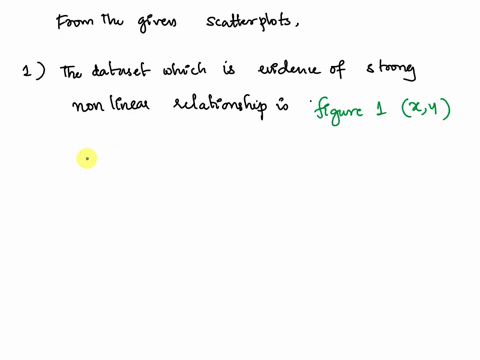 From the given scatterplots,
1) The dataset which is evidence of strong
non linear relationship is figure 1 (x,y)